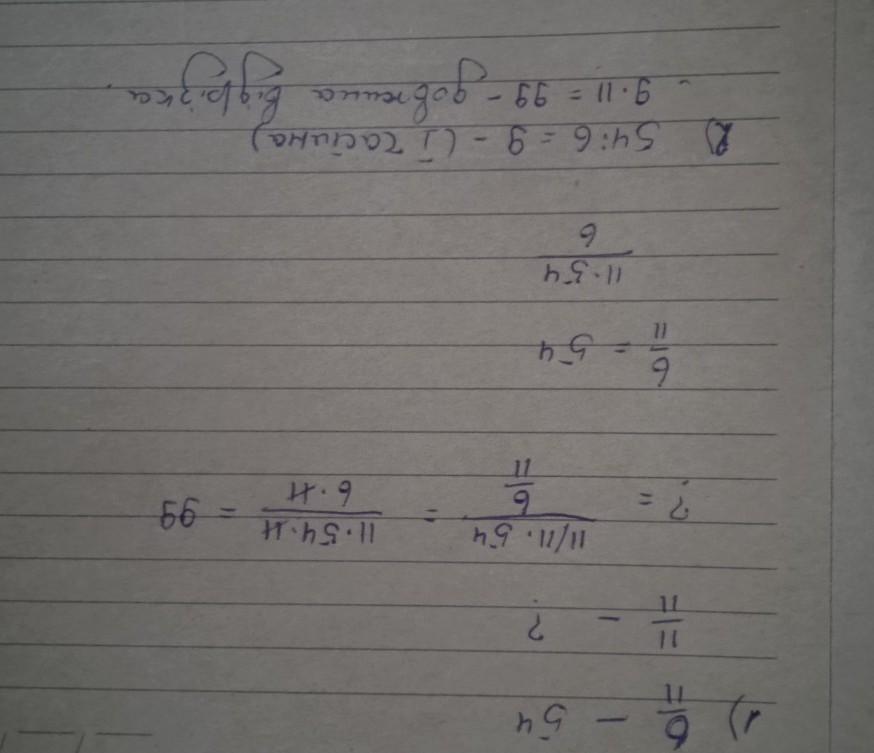 1) 6/11 - 54
11/11 - ?
? = (11/11 · 54)/(6/11) = (11·54·11)/(6·11) = 99
6/11 = 54
(11·54)/6
2) 54:6 = 9 - (1 частина)
9·11 = 99 - довжина відрізка.